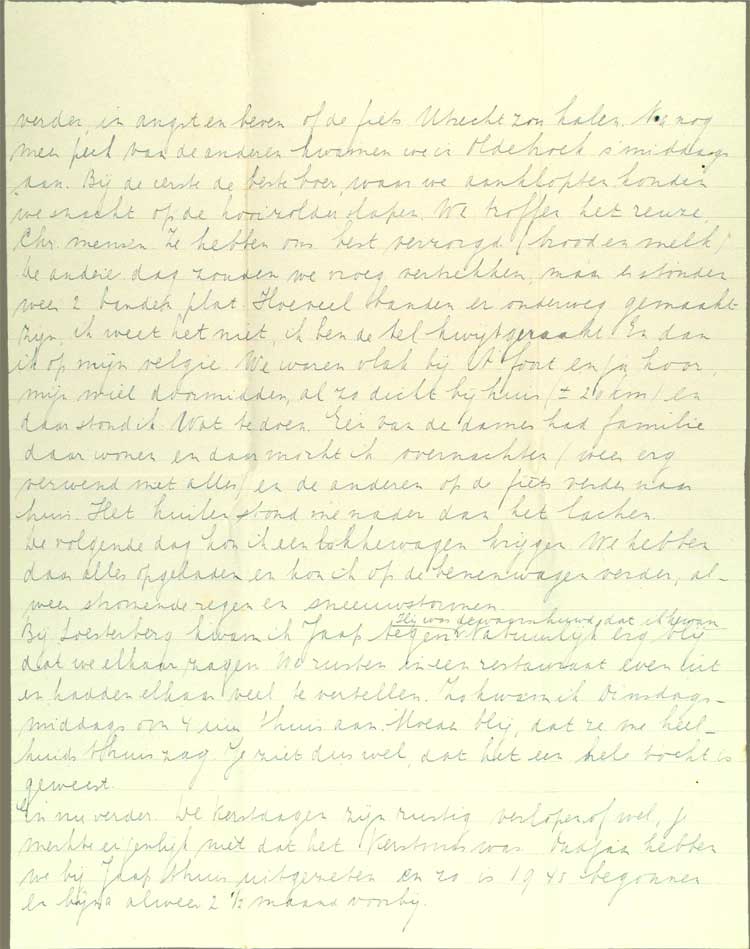 verder, in angst en beven of de fiets Utrecht zou halen. Na nog
meer pech van de anderen kwamen we in Oldebroek 's middags
aan. Bij de eerste de beste boer, waar we aanklopten konden
we snacht op de hooizolder slapen. We troffen het reuze,
Chr. mensen. Ze hebben ons best verzorgd (brood en melk)
De andere dag zouden we vroeg vertrekken, maar er stonden
weer 2 banden plat. Hoeveel banden er onderweg gemaakt
zijn, ik weet het niet, ik ben de tel kwijtgeraakt. En dan
ik op mijn velgie. We waren vlak bij A'foort en ja hoor,
mijn wiel doormidden, al zo dicht bij huis (± 20 km) en
daar stond ik. Wat te doen. Eén van de dames had familie
daar wonen en daar mocht ik overnachten (weer erg
verwend met alles) en de anderen op de fiets verder naar
huis. Het huilen stond me nader dan het lachen.
De volgende dag kon ik een bakkewagen krijgen. We hebben
daar alles opgeladen en kon ik op de benenwagen verder, al-
weer stromende regen en sneeuwstormen.
Hij was gewaarschuwd, dat ik kwam
Bij Soesterberg kwam ik Jaap tegen. Natuurlijk erg blij
dat we elkaar zagen. We rustten in een restaurant even uit
en hadden elkaar veel te vertellen. Zo kwam ik Dinsdags-
middags om 4 uur thuis aan. Moeder blij, dat ze me heel-
huids thuis zag. Je ziet dus wel, dat het een hele tocht is
geweest.
En nu verder. De Kerstdagen zijn rustig verlopen of wel, je
merkte eigenlijk niet dat het Kerstmis was. Oudjaar hebben
we bij Jaap thuis uitgezeten en zo is 1945 begonnen
en bijna alweer 2 ½ maand voorbij.